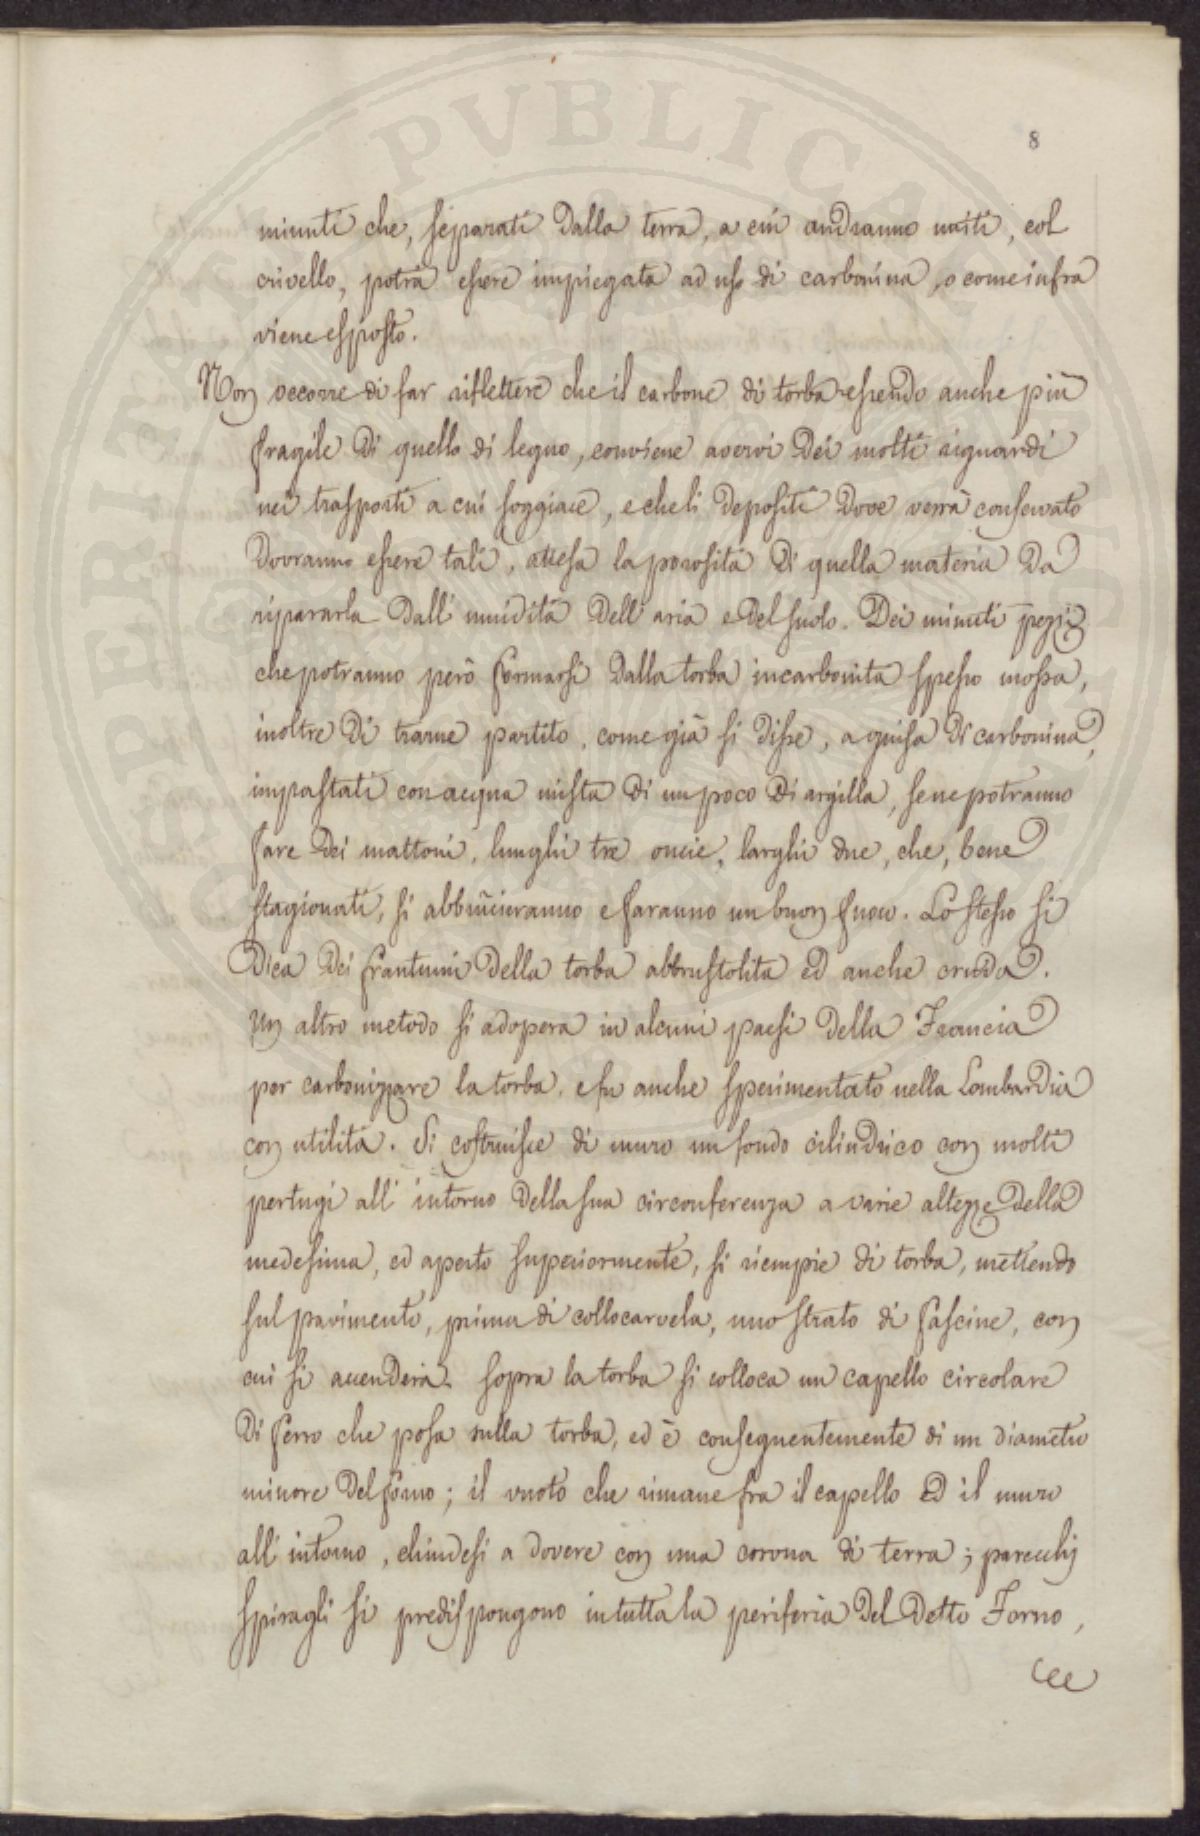 8
minuti che, separati dalla terra, a cui andranno uniti, col
crivello, potrà essere impiegata ad uso di carbonina, o come infra
viene esposto.
Non occorre di far riflettere che il carbone di torba essendo anche più
fragile di quello di legno, conviene avervi dei molti riguardi
nei trasporti a cui soggiace, e che li depositi dove verrà conservato
dovranno essere tali, attesa la porosità di quella materia da
ripararla dall' umidità dell' aria e del suolo. Dei minuti pezzi
che potranno però formarsi dalla torba incarbonita spesso mossa,
inoltre di trarne partito, come già si disse, a guisa di carbonina,
impastati con acqua mista di un poco di argilla, se ne potranno
fare dei mattoni, lunghi tre oncie, larghi due, che, bene
stagionati, si abbruccieranno e faranno un buon fuoco. Lo stesso si
dica dei frantumi della torba abbrustolita ed anche cruda.
Un altro metodo si adopera in alcuni paesi della Francia
per carbonizzare la torba, e fu anche sperimentato nella Lombardia
con utilità. Si costruisce di muro un fondo cilindrico con molti
pertugi all' intorno della sua circonferenza a varie altezze della
medesima, ed aperto superiormente, si riempie di torba, mettendo
sul pavimento, prima di collocarvela, uno strato di fascine, con
cui si accenderà. Sopra la torba si colloca un capello circolare
di ferro che posa sulla torba, ed è conseguentemente di un diametro
minore del forno; il vuoto che rimane fra il capello ed il muro
all' intorno, chiudesi a dovere con una corona di terra; parecchj
spiragli si predispongono in tutta la periferia del detto Forno,